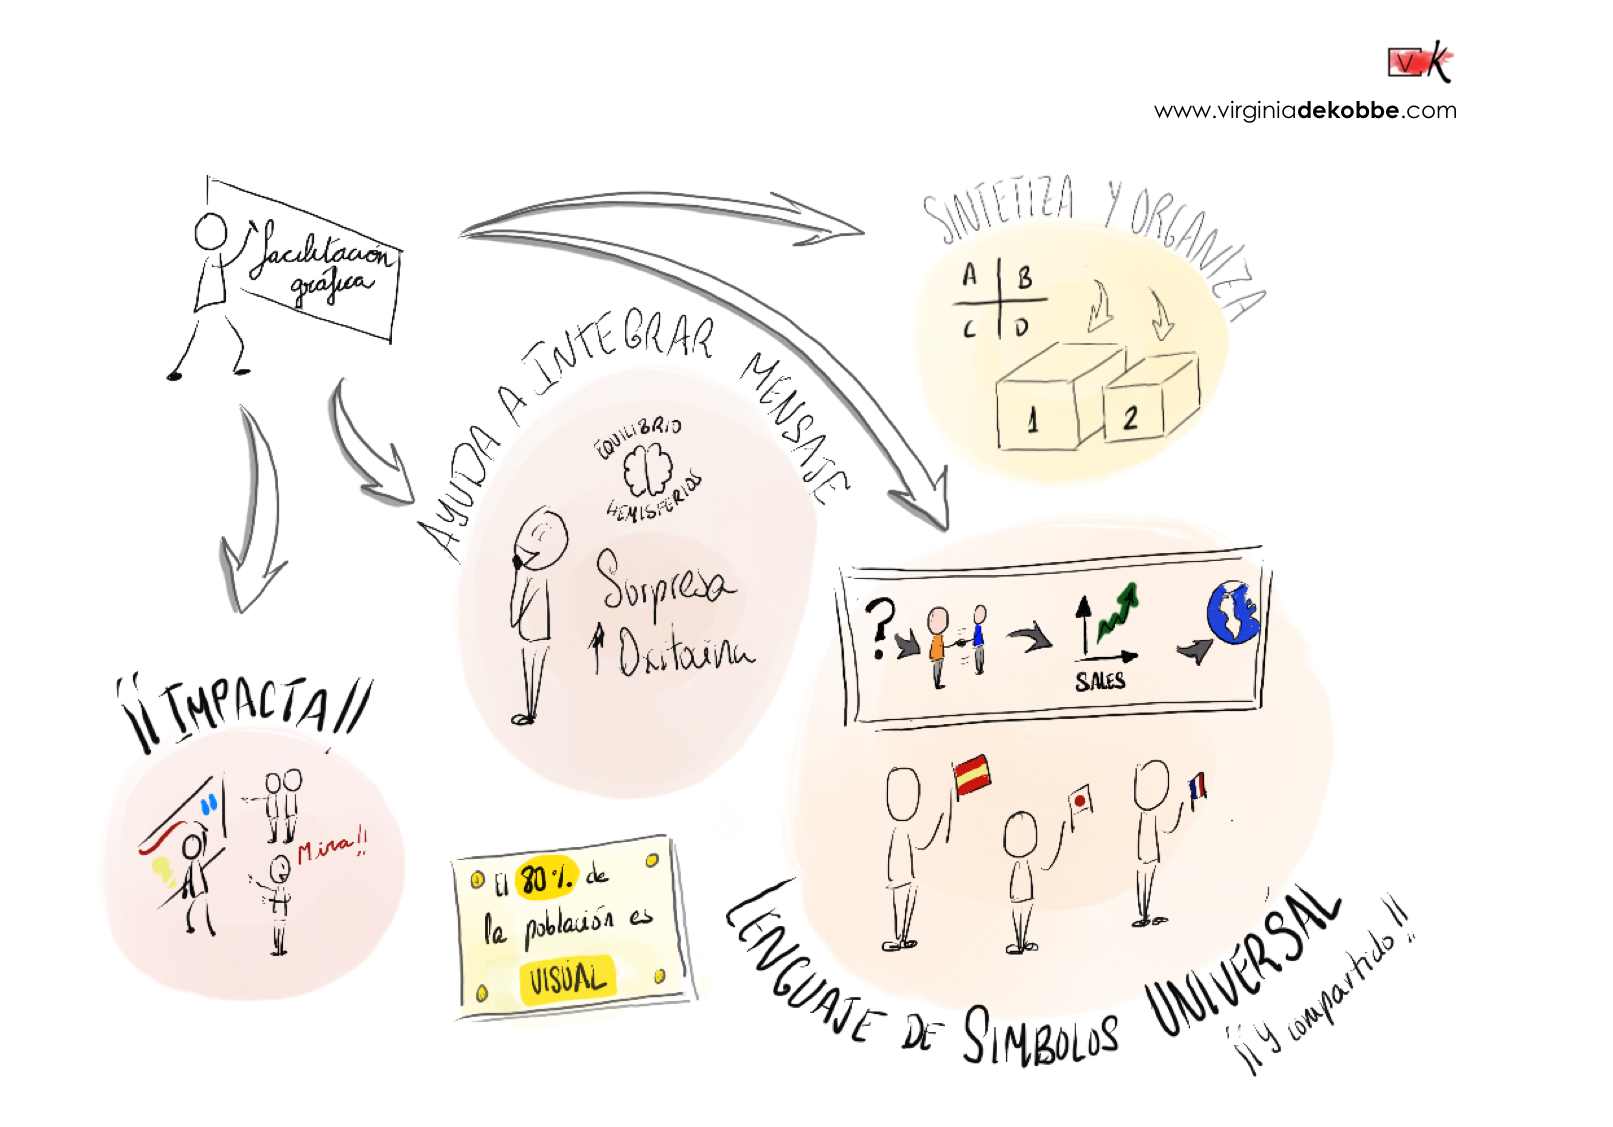 VK
www.virginiadekobbe.com
facilitación
gráfica
SINTETIZA Y ORGANIZA
A B
C D
1 2
AYUDA A INTEGRAR MENSAJE
EQUILIBRIO
HEMISFERIOS
Sorpresa
Oxitocina
?
SALES
¡¡IMPACTA!!
Mira!!
El 80% de
la población es
VISUAL
LENGUAJE DE SIMBOLOS UNIVERSAL
¡¡Y compartido!!